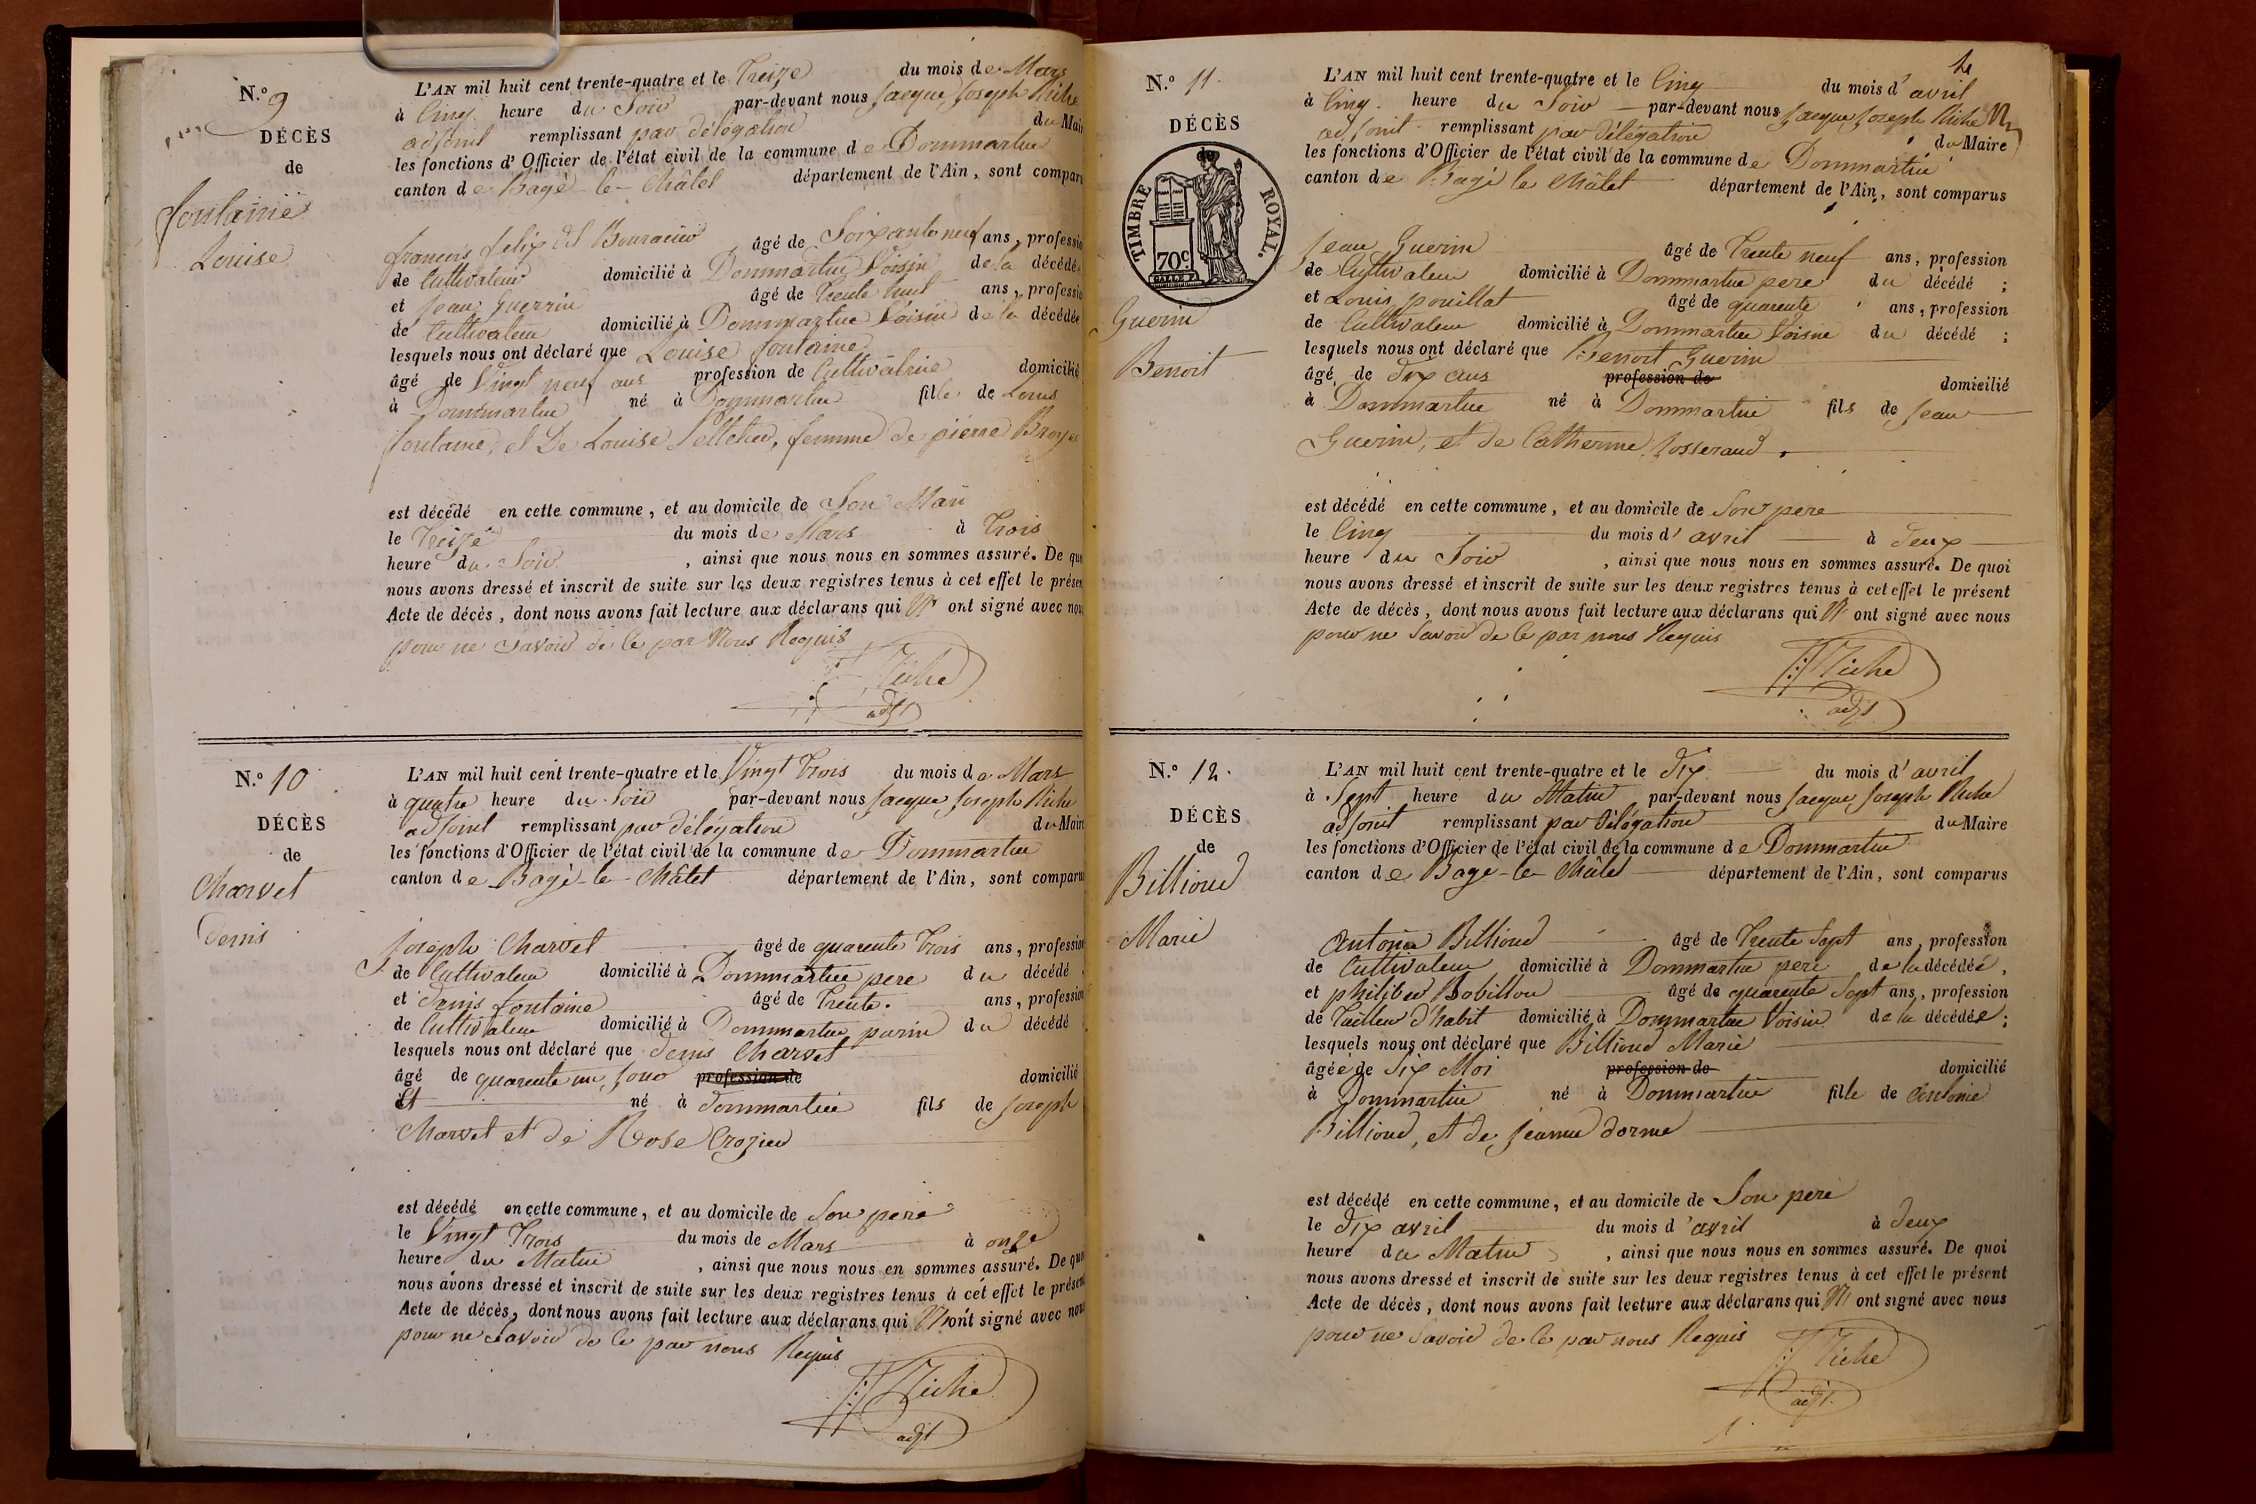 N.o 9
DÉCÈS
de
fontaine
Louise
L'AN mil huit cent trente-quatre et le Treize du mois de Mars
à Cinq heure du Soir par-devant nous Jacque Joseph Riche
adjoint remplissant par délégation du Mair
les fonctions d'Officier de l'état civil de la commune de Dommartin
canton de Bagé-le-Châtel département de l'Ain, sont compar
francois felix âgé de Soixante neuf ans, professio
de Cultivateur domicilié à Dommartin Voisin de la décédé
et Jean Guerrin âgé de Trente huit ans, professio
de Cultivateur domicilié à Dommartin Voisin de la décédée
lesquels nous ont déclaré que Louise fontaine
âgé de Vingt neuf ans profession de Cultivatrice domicilié
à Dommartin né à Dommartin fille de Louis
fontaine, et De Louise Pelletier, femme de pierre Broyer
est décédé en cette commune, et au domicile de Son Mari
le Treize du mois de Mars à Trois
heure du Soir, ainsi que nous nous en sommes assuré. De qu
nous avons dressé et inscrit de suite sur les deux registres tenus à cet effet le présen
Acte de décès, dont nous avons fait lecture aux déclarans qui N' ont signé avec nou
pour ne Savoir de Ce par Nous Requis
Riche
adjt
N.o 10
DÉCÈS
de
Charvet
Denis
L'AN mil huit cent trente-quatre et le Vingt Trois du mois de Mars
à quatre heure du Soir par-devant nous Jacque Joseph Riche
adjoint remplissant par délégation du Mair
les fonctions d'Officier de l'état civil de la commune de Dommartin
canton de Bagé-le-Châtel département de l'Ain, sont comparu
Joseph Charvet âgé de quarente Trois ans, profession
de Cultivateur domicilié à Dommartin pere du décédé
et Denis fontaine âgé de Trente. ans, profession
de Cultivateur domicilié à Dommartin parin du décédé
lesquels nous ont déclaré que Denis Charvet
âgé de quarente un Jour profession de domicilié
Et né à Dommartin fils de Joseph
Charvet et de Rose Crozier
est décédé en cette commune, et au domicile de Son pere
le Vingt Trois du mois de Mars à onze
heure du Matin, ainsi que nous nous en sommes assuré. De quo
nous avons dressé et inscrit de suite sur les deux registres tenus à cet effet le présen
Acte de décès, dont nous avons fait lecture aux déclarans qui N'ont signé avec nou
pour ne Savoir de Ce par nous Requis
Riche
adjt
N.o 11.
DÉCÈS
TIMBRE ROYAL.
70c
Guerin
Benoit
L'AN mil huit cent trente-quatre et le Cinq du mois d'avril
à Cinq. heure du Soir par-devant nous Jacque Joseph Riche
adjoint remplissant par délégation du Maire
les fonctions d'Officier de l'état civil de la commune de Dommartin
canton de Bagé le Châtel département de l'Ain, sont comparus
Jean Guerin âgé de Trente neuf ans, profession
de Cultivateur domicilié à Dommartin pere du décédé ;
et Louis pouillat âgé de quarente ans, profession
de Cultivateur domicilié à Dommartin Voisin du décédé ;
lesquels nous ont déclaré que Benoit Guerin
âgé de Dix ans profession de domicilié
à Dommartin né à Dommartin fils de Jean
Guerin, et de Catherine Josserand.
est décédé en cette commune, et au domicile de Son pere
le Cinq du mois d'avril à Deux
heure du Soir, ainsi que nous nous en sommes assuré. De quoi
nous avons dressé et inscrit de suite sur les deux registres tenus à cet effet le présent
Acte de décès, dont nous avons fait lecture aux déclarans qui N' ont signé avec nous
pour ne Savoir de Ce par nous Requis
Riche
adjt
N.o 12.
DÉCÈS
de
Billioud
Marie
L'AN mil huit cent trente-quatre et le Dix du mois d'avril
à Sept heure du Matin par-devant nous Jacque Joseph Riche
adjoint remplissant par délégation du Maire
les fonctions d'Officier de l'état civil de la commune de Dommartin
canton de Bagé-le-Châtel département de l'Ain, sont comparus
Antoine Billioud âgé de Trente Sept ans, profession
de Cultivateur domicilié à Dommartin pere de la décédée,
et philiber Bobillon âgé de quarente Sept ans, profession
de Tailleur d'habit domicilié à Dommartin Voisin de la décédée ;
lesquels nous ont déclaré que Billioud Marie
âgée de Six Moi profession de domicilié
à Dommartin né à Dommartin fille de Antoine
Billioud, et de Jeanne Dorme
est décédé en cette commune, et au domicile de Son pere
le Dix avril du mois d'avril à Deux
heure du Matin, ainsi que nous nous en sommes assuré. De quoi
nous avons dressé et inscrit de suite sur les deux registres tenus à cet effet le présent
Acte de décès, dont nous avons fait lecture aux déclarans qui N' ont signé avec nous
pour ne Savoir de Ce par nous Requis
Riche
adjt.